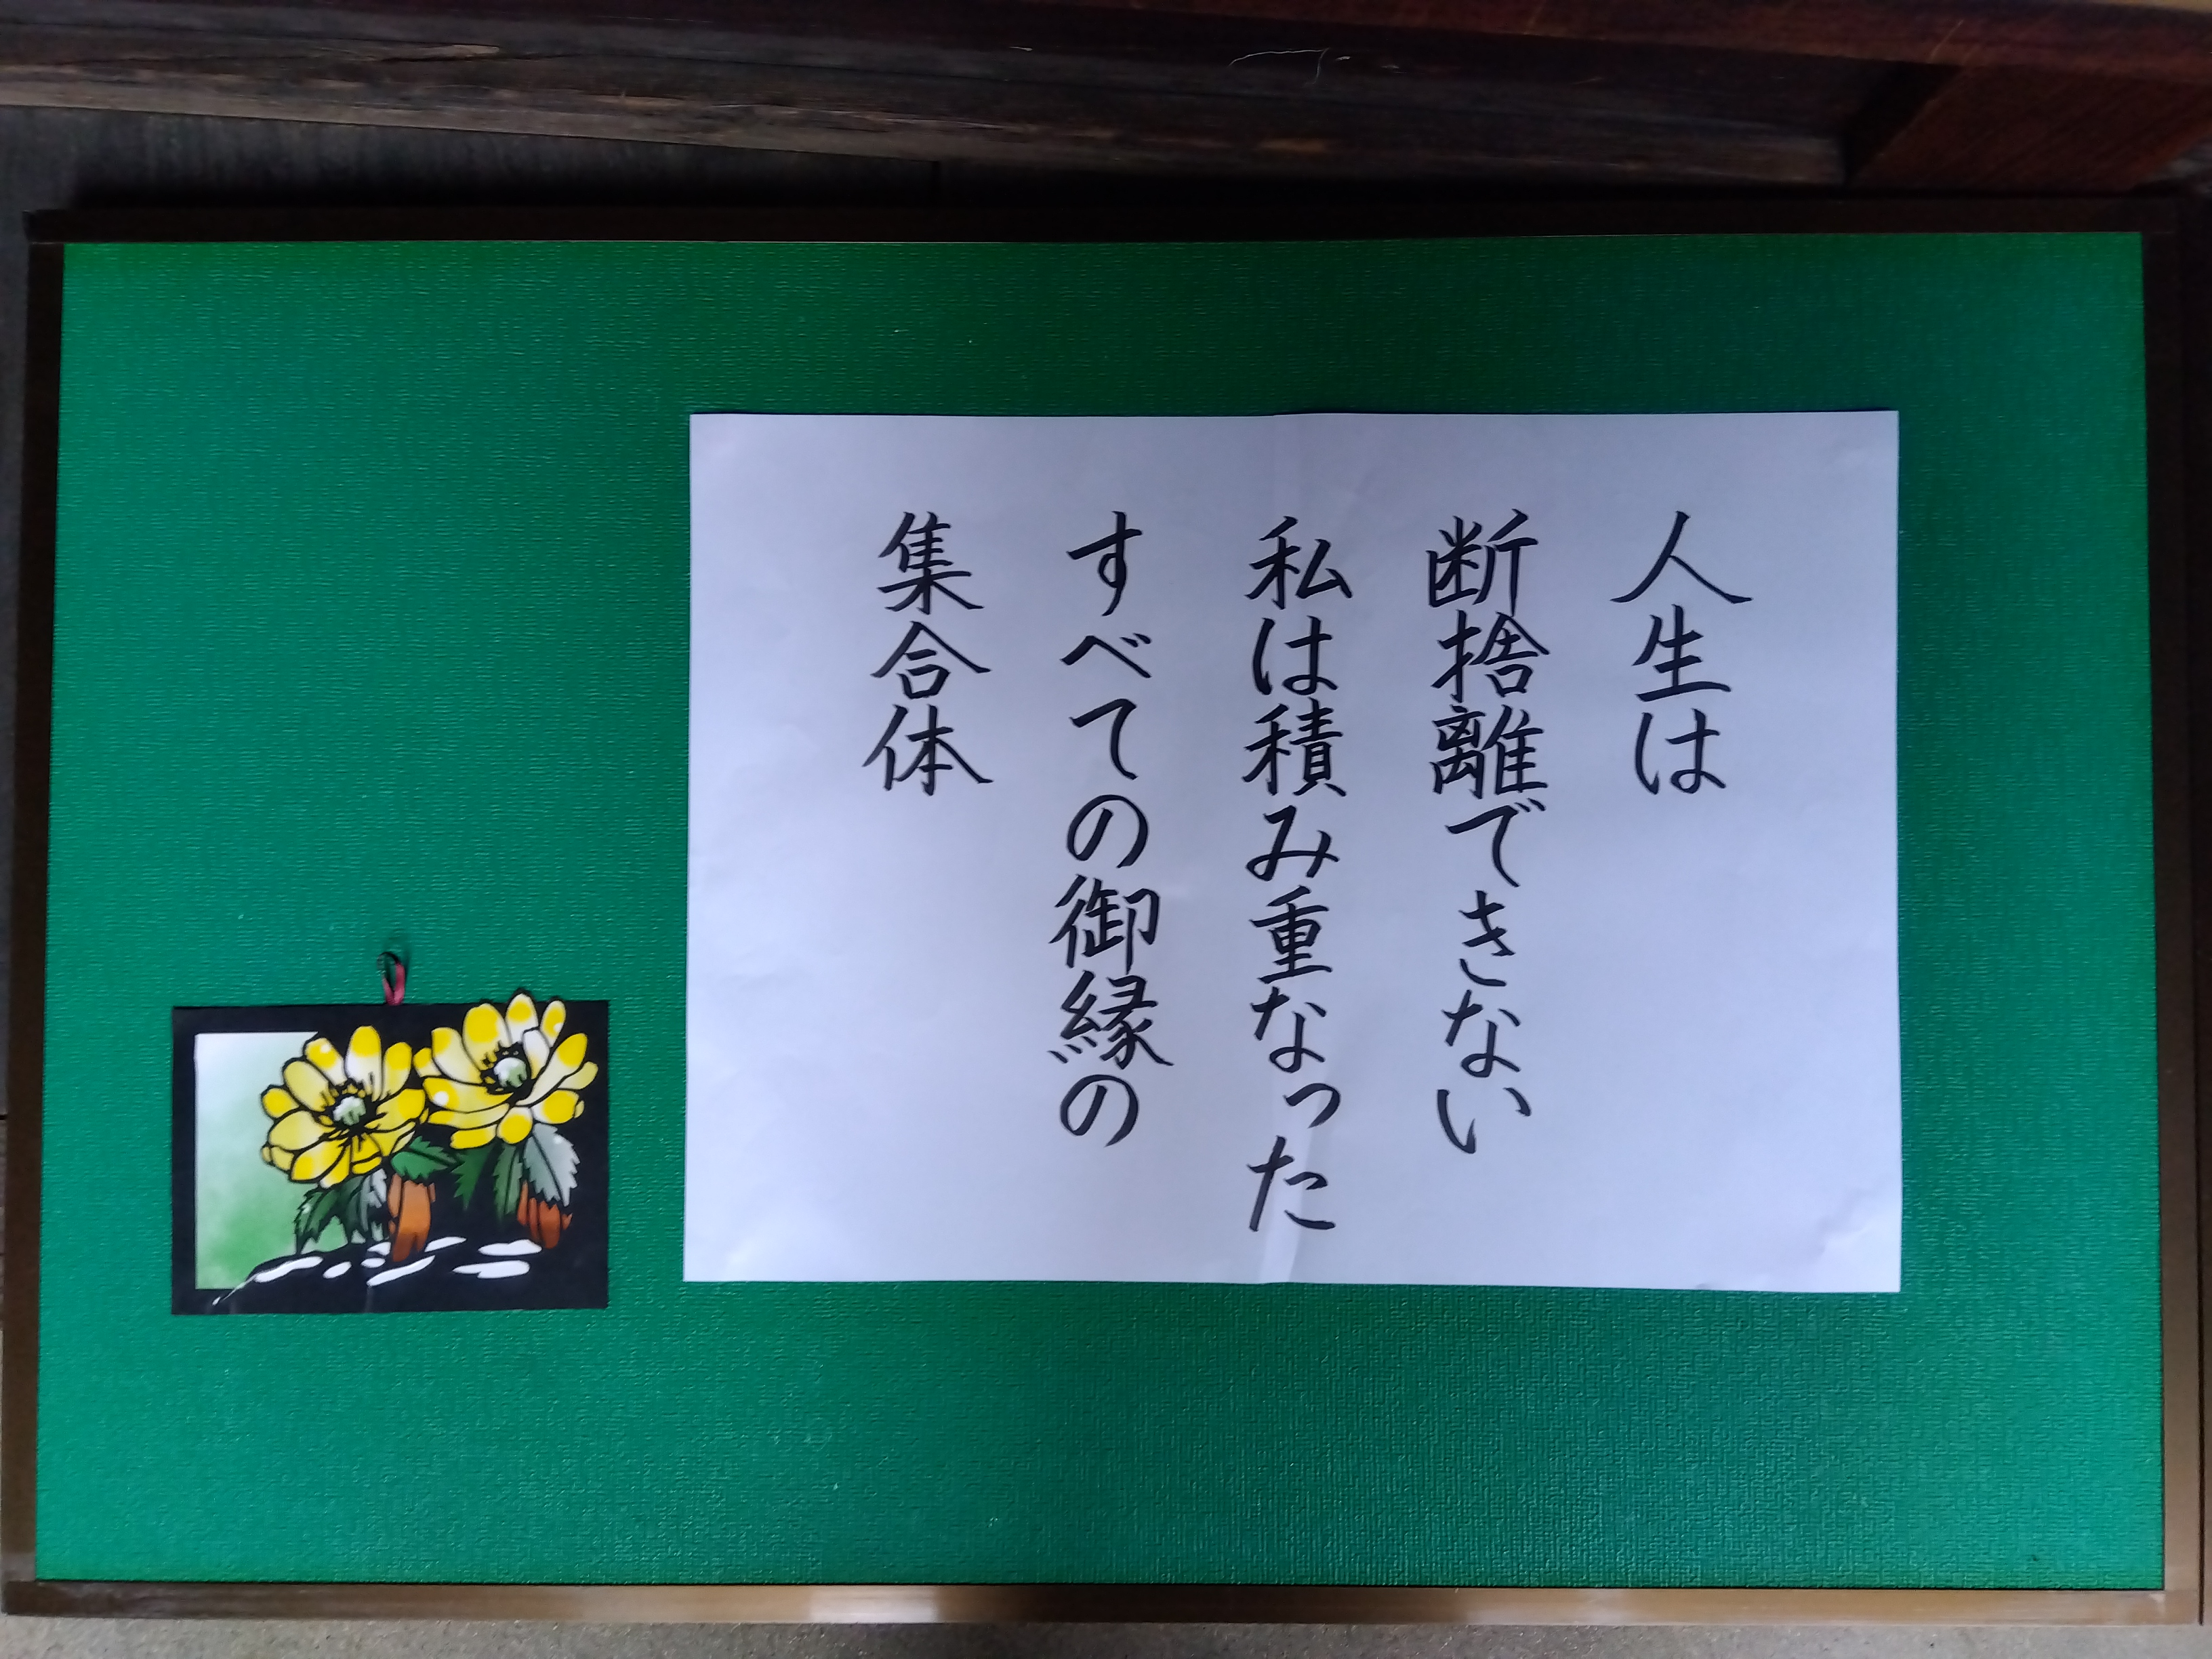 人生は
断捨離できない
私は積み重なった
すべての御縁の
集合体